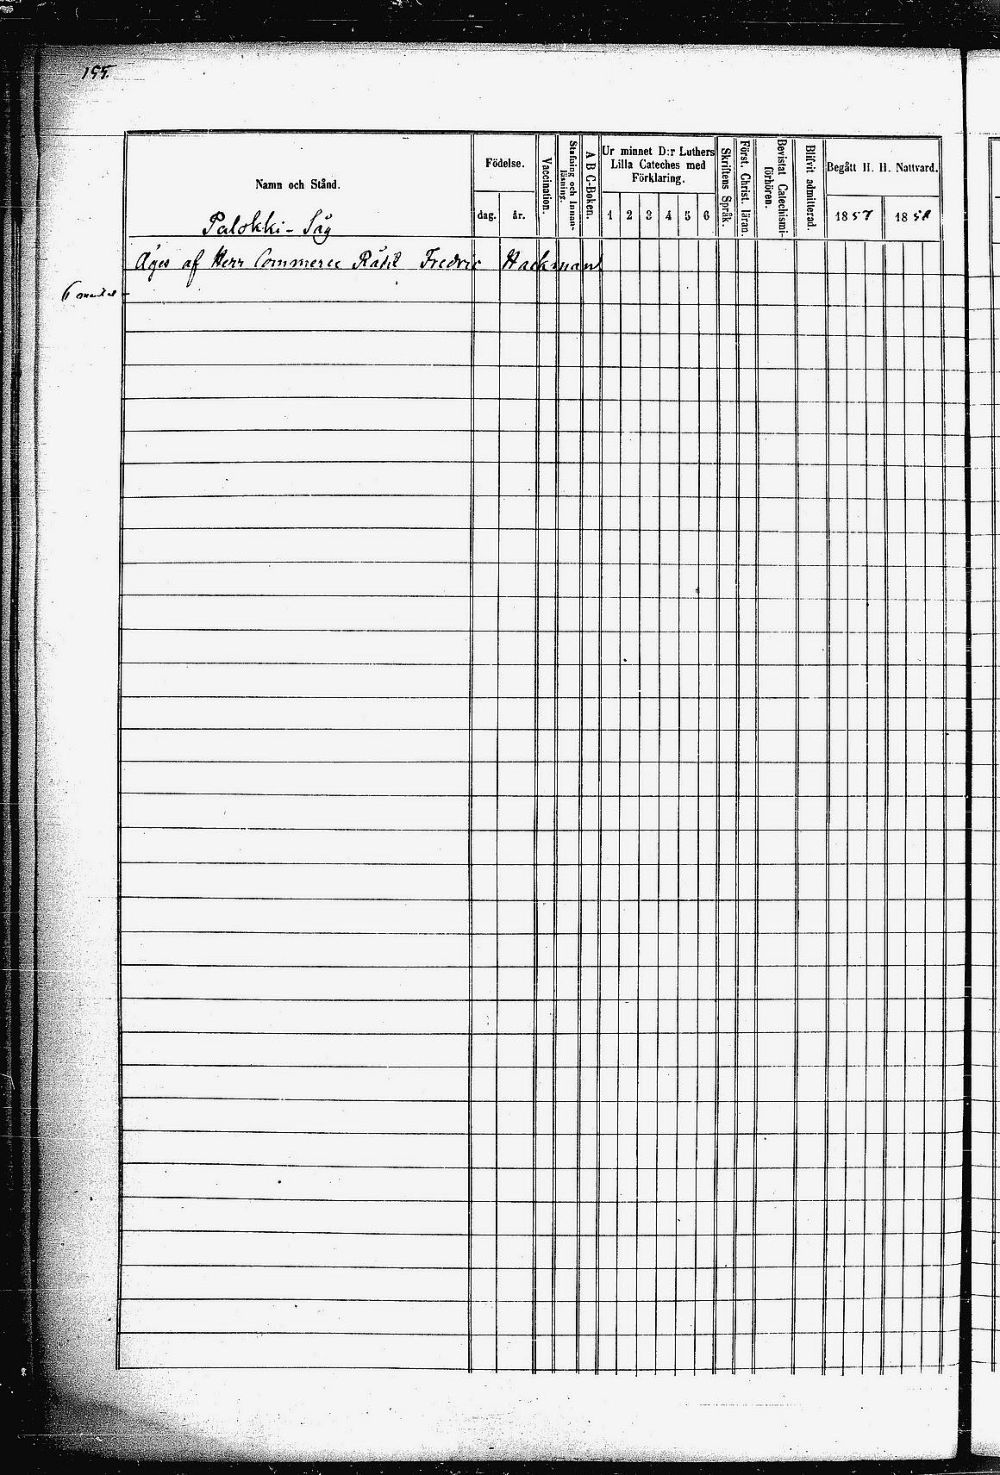 155.
Namn och Stånd.
Födelse.
dag.
år.
Vaccination.
Stafning och Innan-
läsning.
A B C-Boken.
Ur minnet D:r Luthers
Lilla Cateches med
Förklaring.
1 2 3 4 5 6
Skriftens Språk.
Först. Christ. läran.
Bevistat Catechismi-
förhören.
Blifvit admitterad.
Begått H. H. Nattvard.
1857
1858
Palokki-Såg
Äges af Herr Commerce Rådet Fredric Hackman